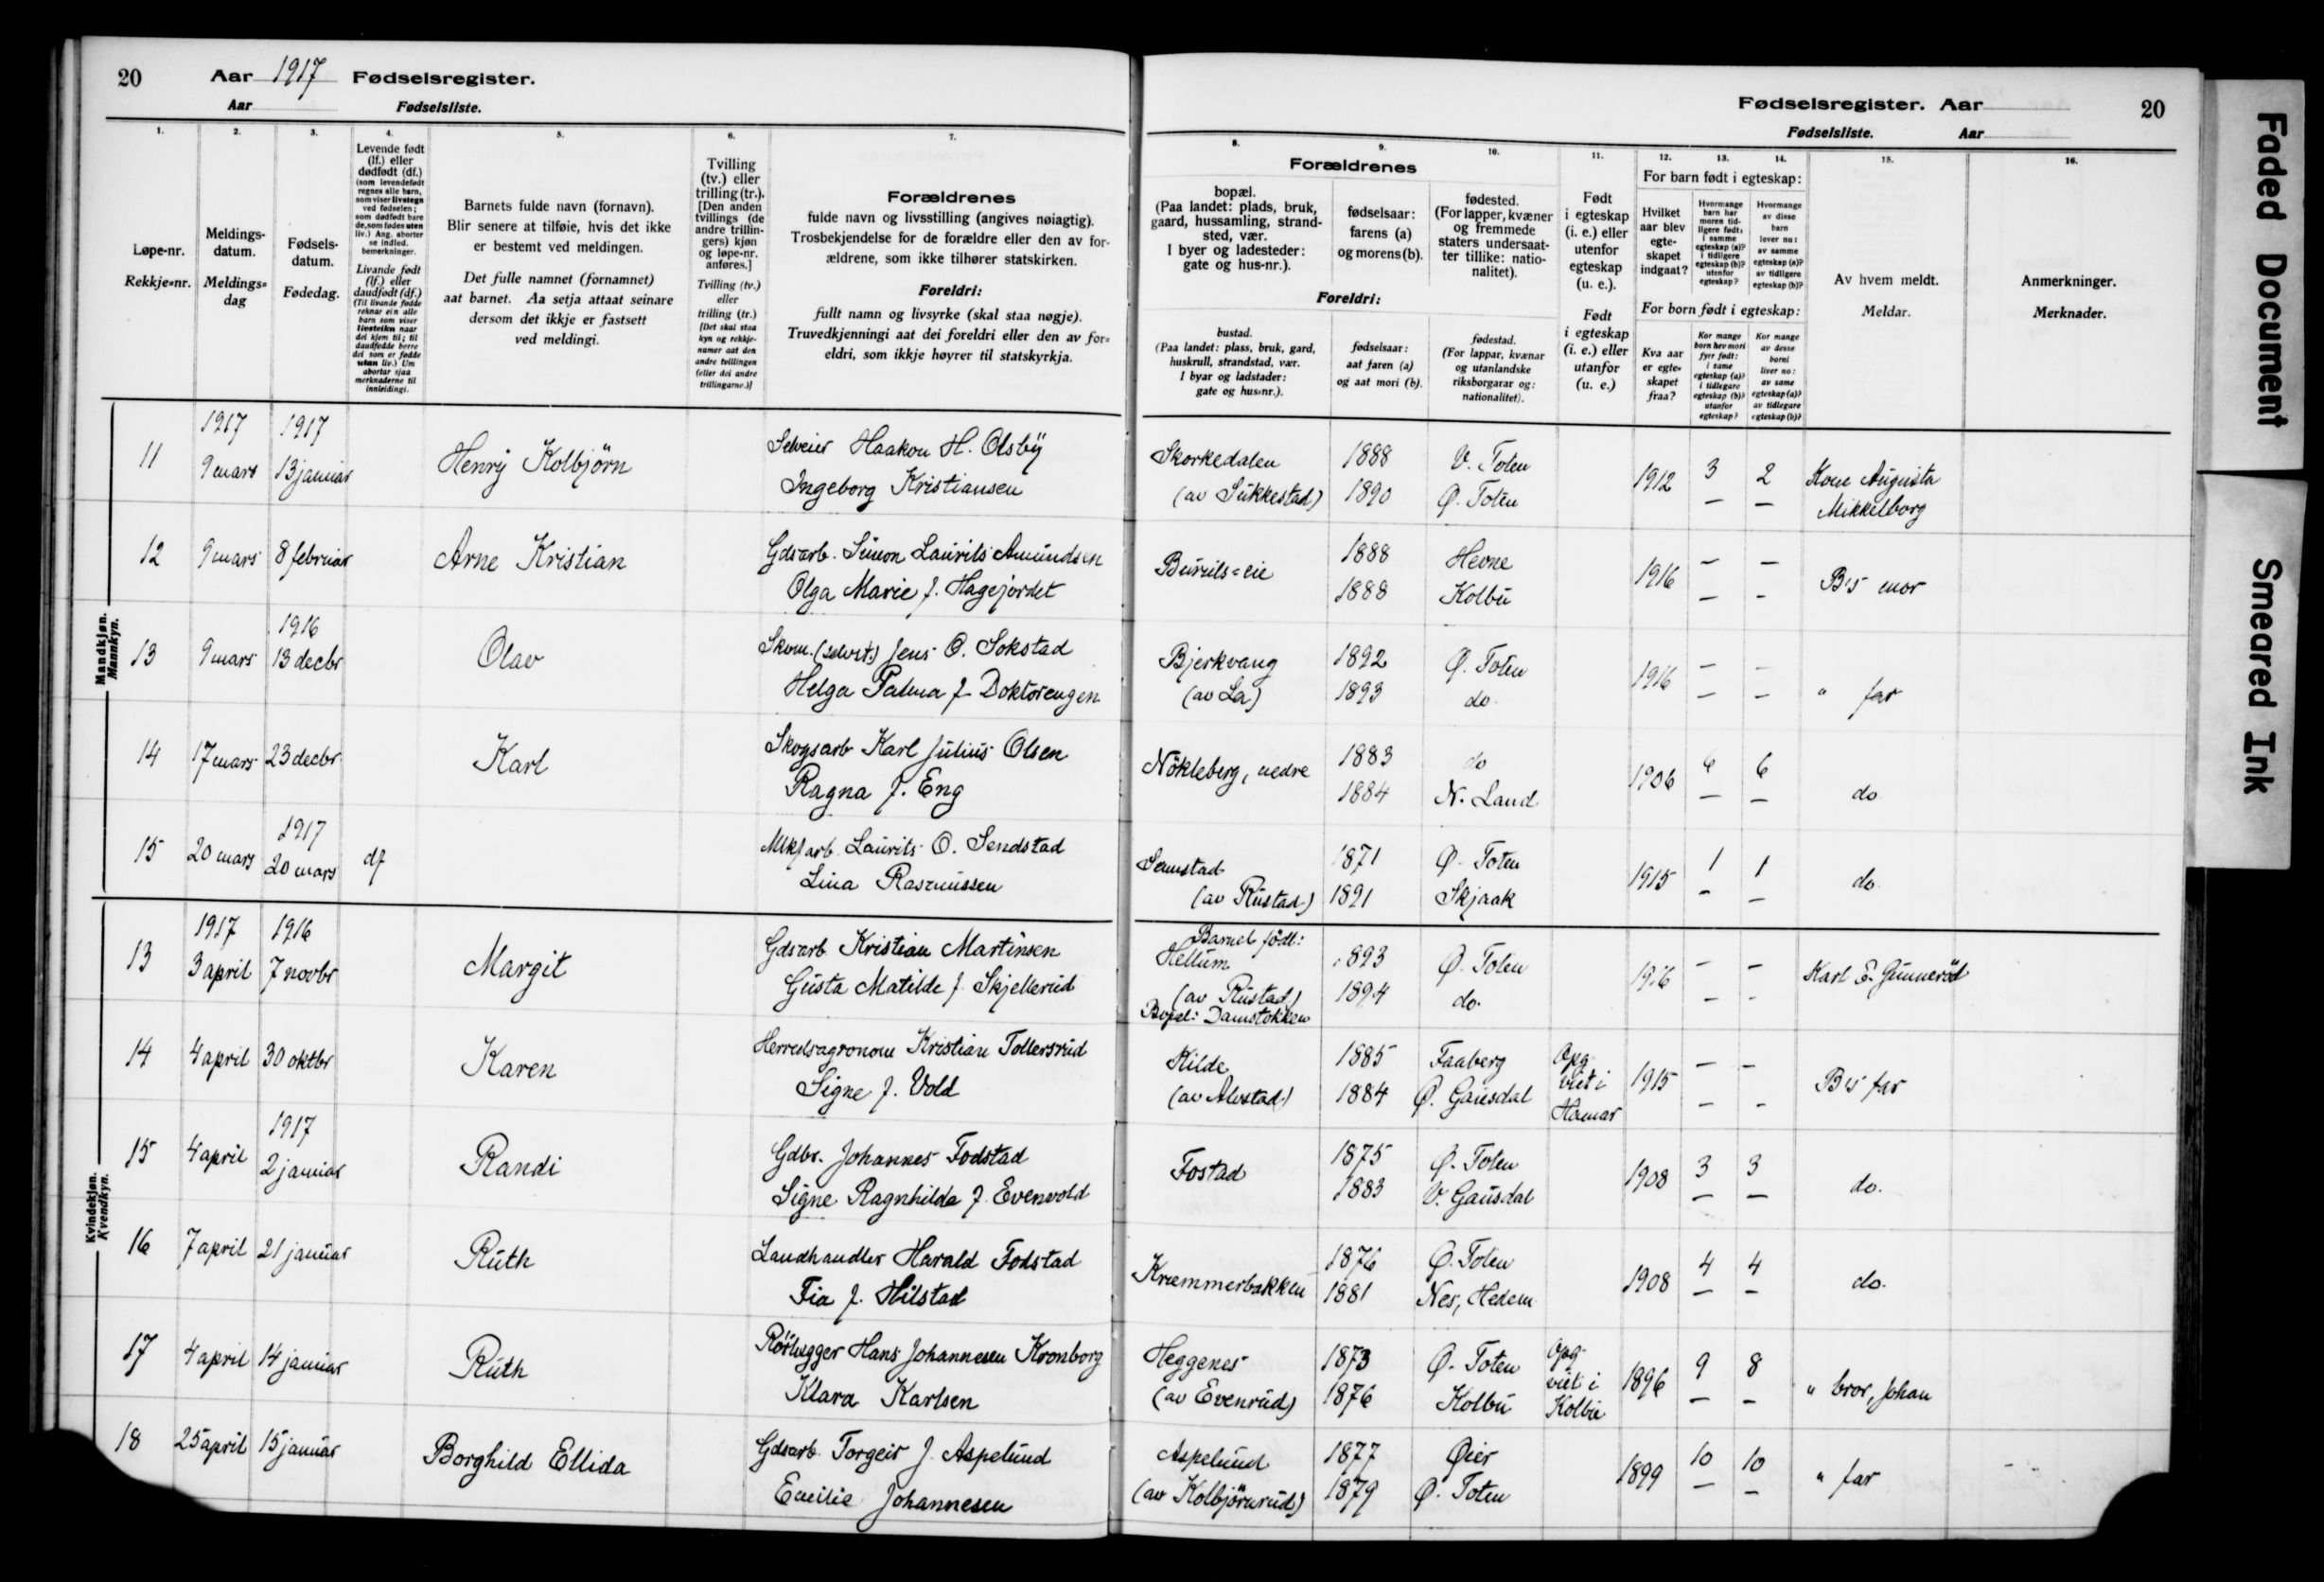 20 Aar 1917 Fødselsregister.
Aar Fødselsliste.
1. 2. 3. 4. 5. 6. 7.
Løpe-nr.
Rekkje=nr.
Meldings-
datum.
Meldings=
dag
Fødsels-
datum.
Fødedag.
Levende født
(lf.) eller
dødfødt (df.)
(som levendefødt
regnes alle barn,
som viser livstegn
ved fødselen;
som dødfødt bare
de, som fødes uten
liv.) Ang. aborter
se indled.
bemerkninger.
Livande født
(lf.) eller
daudfødt (df.)
(Til livande fødde
reknar ein alle
barn som viser
livsteikn naar
dei kjem til; til
daudfødde berre
dei som er fødde
utan liv.) Um
abortar sjaa
merknaderne til
innleidingi.
Barnets fulde navn (fornavn).
Blir senere at tilføie, hvis det ikke
er bestemt ved meldingen.
Det fulle namnet (fornamnet)
aat barnet. Aa setja attaat seinare
dersom det ikkje er fastsett
ved meldingi.
Tvilling
(tv.) eller
trilling (tr.).
[Den anden
tvillings (de
andre trillin-
gers) kjøn
og løpe-nr.
anføres.]
Tvilling (tv.)
eller
trilling (tr.)
[Det skal staa
kyn og rekkje-
numer aat den
andre tvillingen
(eller dei andre
trillingarne.)]
Forældrenes
fulde navn og livsstilling (angives nøiagtig).
Trosbekjendelse for de forældre eller den av for-
ældrene, som ikke tilhører statskirken.
Foreldri:
fullt namn og livsyrke (skal staa nøgje).
Truvedkjenningi aat dei foreldri eller den av for=
eldri, som ikkje høyrer til statskyrkja.
Mandkjøn.
Mannkyn.
1917 1917
11 9 mars 13 januar Henry Kolbjörn
Selveier Haakon H. Olsby
Ingeborg Kristiansen
12 9 mars 8 februar Arne Kristian
Gdsarb. Simon Laurits Amundsen
Olga Marie f. Hagejordet
1916
13 9 mars 13 decbr Olav
Skom. (selvst.) Jens O. Sokstad
Helga Palma f. Doktorengen
14 17 mars 23 decbr. Karl
Skogsarb Karl Julius Olsen
Ragna f. Eng
1917
15 20 mars 20 mars df
Laurits O. Sendstad
Lina Rasmussen
Kvindekjøn.
Kvendkyn.
1917 1916
13 3 april 7 novbr Margit
Gdsarb Kristian Martinsen
Gusta Matilde f. Skjellerud
14 4 april 30 oktbr Karen
Herredsagronom Kristian Tollersrud
Signe f. Vold
1917
15 4 april 2 januar Randi
Gdbr. Johannes Fodstad
Signe Ragnhilda f. Evenvold
16 7 april 21 januar Ruth
Landhandler Harald Fodstad
Tia f. Hilstad
17 4 april 14 januar Ruth
Rörlægger Hans Johannesen Kronborg
Klara Karlsen
18 25 april 15 januar Borghild Ellida
Gdsarb. Torgeir J. Aspelund
Emilie Johannesen
Fødselsregister. Aar 20
Fødselsliste. Aar
8. 9. 10. 11. 12. 13. 14. 15. 16.
Forældrenes
bopæl.
(Paa landet: plads, bruk,
gaard, hussamling, strand-
sted, vær.
I byer og ladesteder:
gate og hus-nr.).
fødselsaar:
farens (a)
og morens (b).
fødested.
(For lapper, kvæner
og fremmede
staters undersaat-
ter tillike: natio-
nalitet).
Foreldri:
bustad.
(Paa landet: plass, bruk, gard,
huskrull, strandstad, vær.
I byar og ladstader:
gate og hus=nr.).
fødselsaar:
aat faren (a)
og aat mori (b).
fødestad.
(For lappar, kvænar
og utanlandske
riksborgarar og:
nationalitet).
Født
i egteskap
(i. e.) eller
utenfor
egteskap
(u. e.).
Født
i egteskap
(i. e.) eller
utanfor
(u. e.)
For barn født i egteskap:
Hvilket
aar blev
egte-
skapet
indgaat?
Hvormange
barn har
moren tid-
ligere født:
i samme
egteskap (a)?
i tidligere
egteskap (b)?
utenfor
egteskap?
Hvormange
av disse
barn
lever nu:
av samme
egteskap (a)?
av tidligere
egteskap (b)?
For born født i egteskap:
Kva aar
er egte=
skapet
fraa?
Kor mange
born hev mori
fyrr født:
i same
egteskap (a)?
i tidlegare
egteskap (b)?
utanfor
egteskap?
Kor mange
av desse
borni
liver no:
av same
egteskap (a)?
av tidlegare
egteskap (b)?
Av hvem meldt.
Meldar.
Anmerkninger.
Merknader.
Skorkedalen 1888 V. Toten
(av Sukkestad) 1890 Ø. Toten
1912 3 2 Kone Augusta
— — Mikkelborg
Buruls=eie 1888 Hevne
1888 Kolbu
1916 — — B's mor
— -
Bjerkvang 1892 Ø. Toten
(av La) 1893 do.
1916 — —
— — " far
Nökleberg, nedre 1883 do
1884 N. Land
1906 6 6
— — do
Semstad 1871 Ø. Toten
(av Rustad) 1891 Skjaak
1915 1 1 do.
— —
Barnet födt:
Hellum 1893 Ø. Toten
(av Rustad) 1894 do.
Bopel: Damstokken
1916 — — Karl E. Gunneröd
— -
Kilde 1885 Faaberg
(av Alvstad) 1884 Ø. Gausdal
Opg.
viet i
Hamar
1915 — — B's far
— -
Fostad 1875 Ø. Toten
1883 V. Gausdal
1908 3 3 do.
— —
Kræmmerbakken 1876 Ø. Toten
1881 Nes, Hedem.
1908 4 4 do.
— —
Heggenes 1873 Ø. Toten
(av Evenrud) 1876 Kolbu
Opg.
viet i
Kolbu
1896 9 8 " bror, Johan
— —
Aspelund 1877 Øier
(av Kolbjörnrud) 1879 Ø. Toten
1899 10 10 " far
— —
Faded Document
Smeared Ink